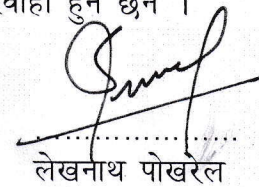 हुने छन ।
लेखनाथ पोखरेल